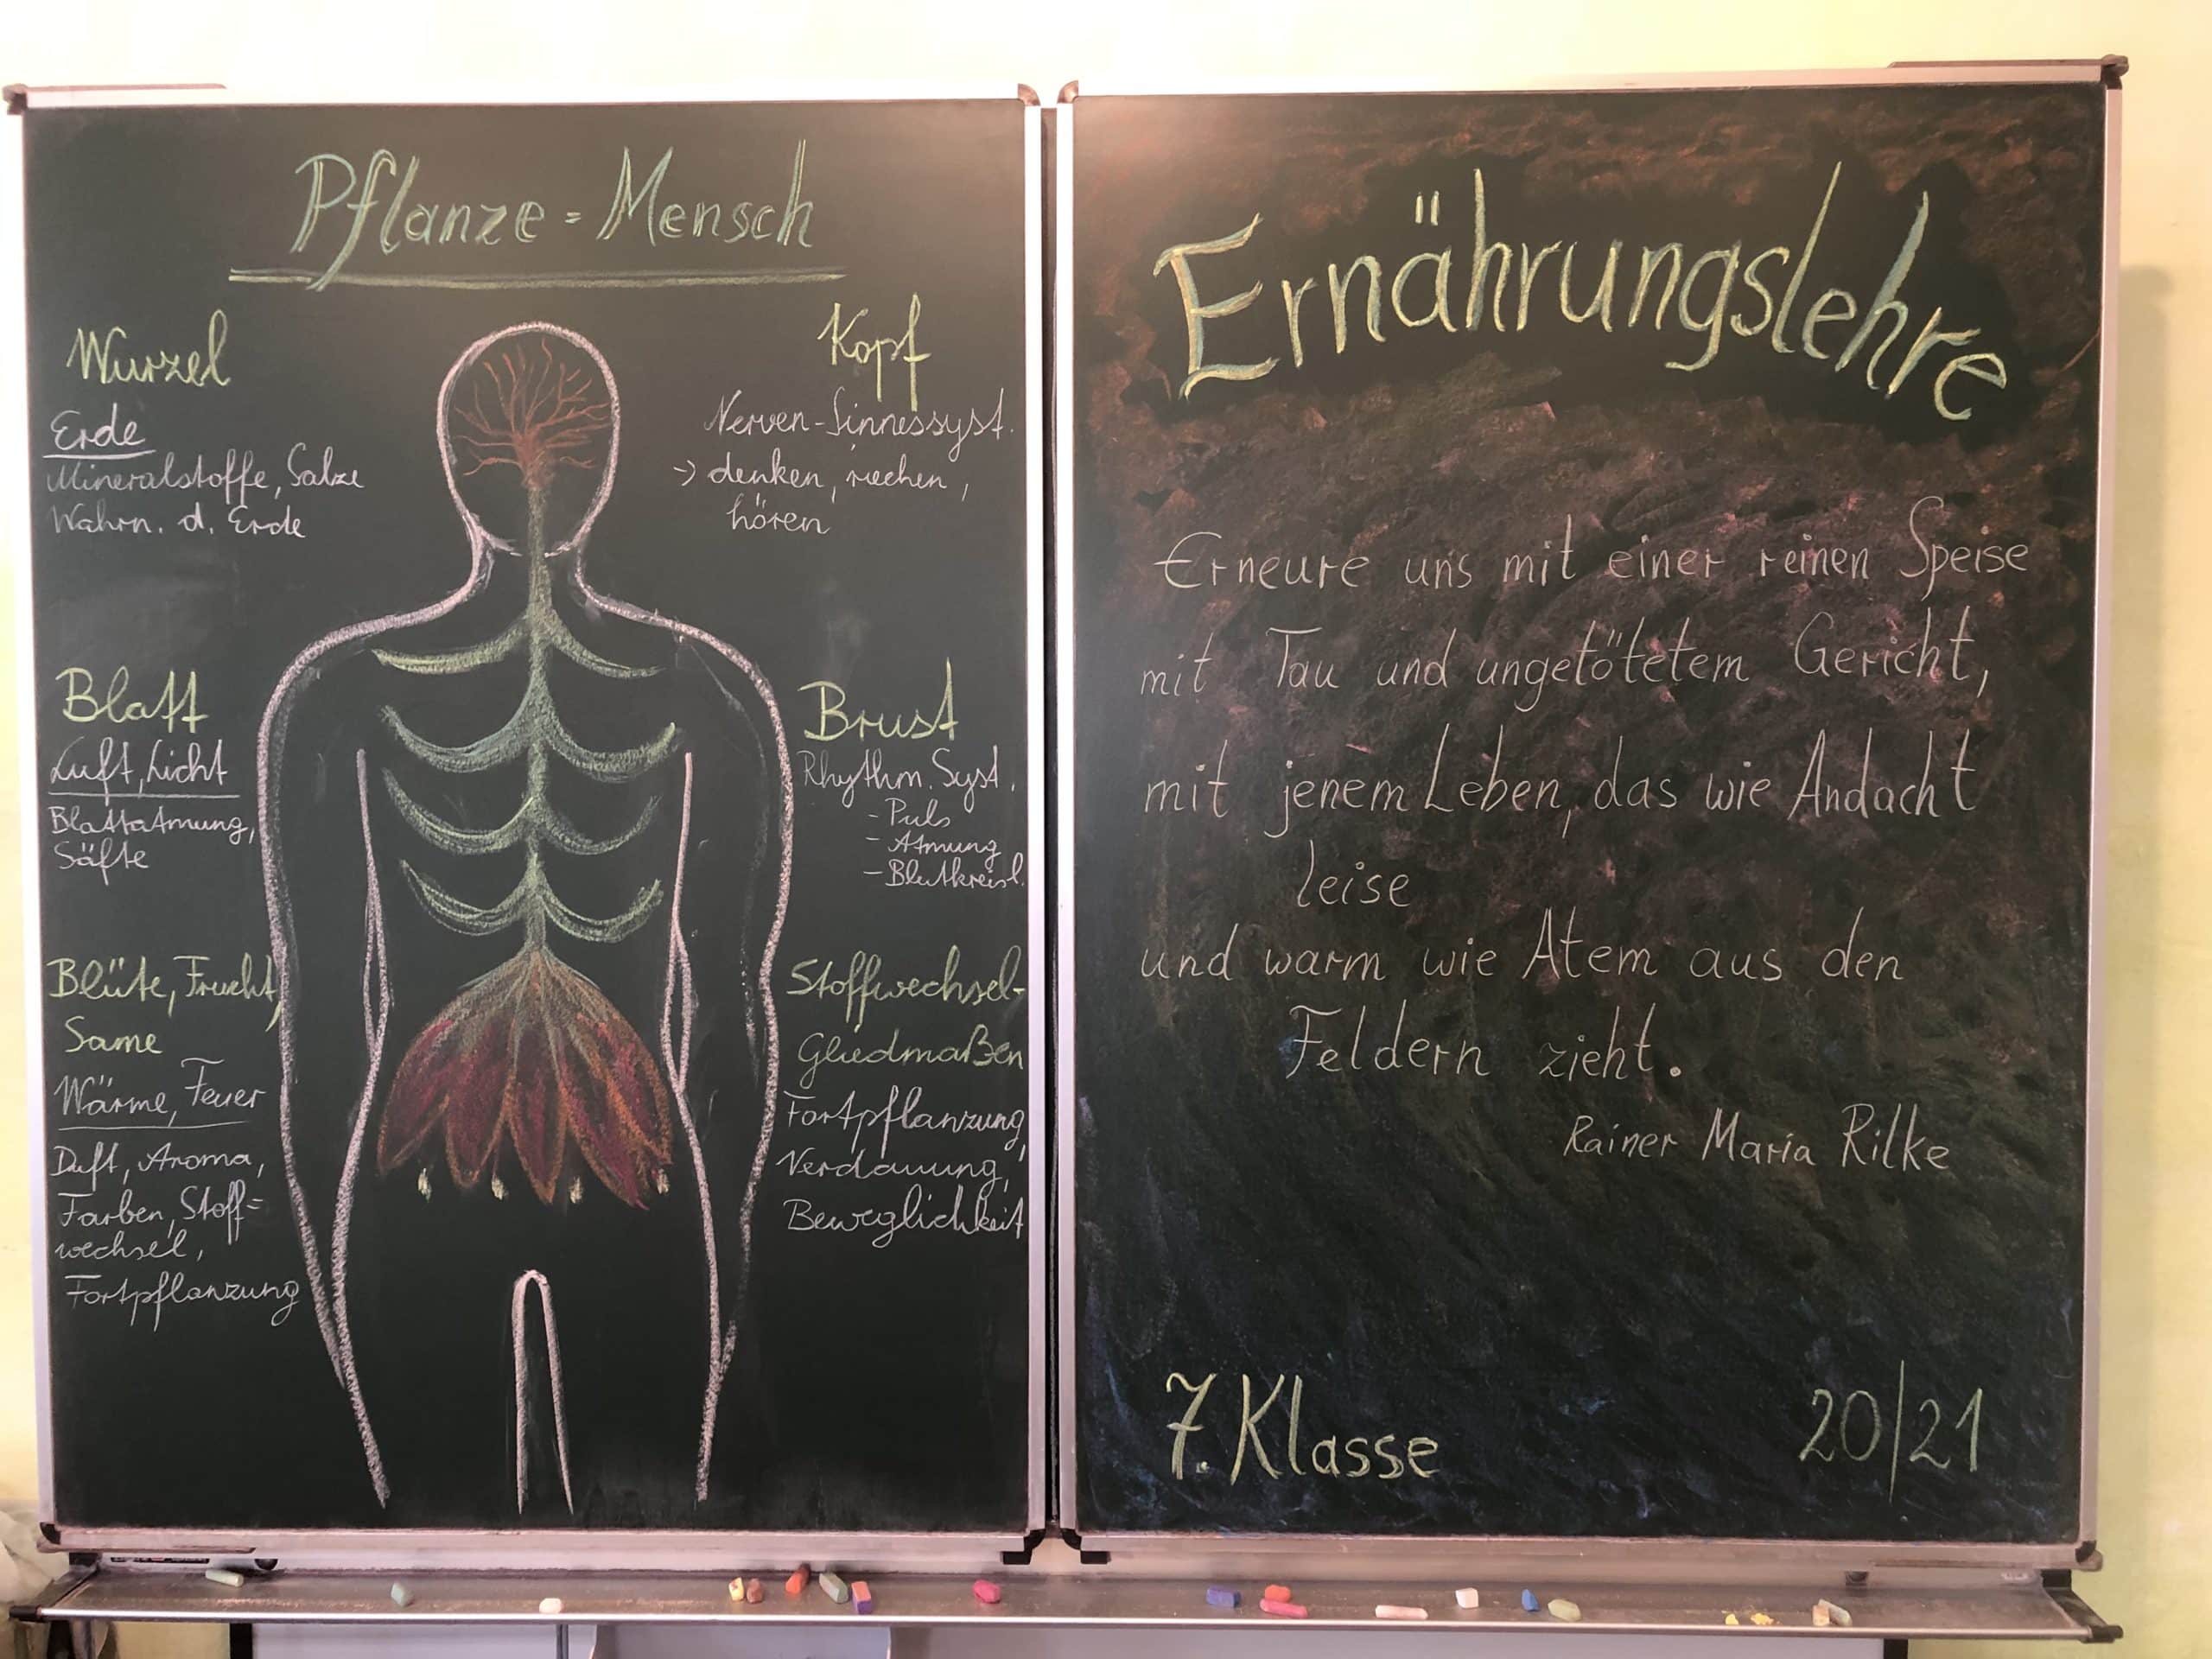 Pflanze = Mensch
Wurzel
Erde
Mineralstoffe, Salze
Wahrn. d. Erde
Kopf
Nerven-Sinnessyst.
-> denken, riechen,
hören
Blatt
Luft, Licht
Blattatmung,
Säfte
Brust
Rhythm. Syst.
- Puls
- Atmung
- Blutkreisl.
Blüte, Frucht,
Same
Wärme, Feuer
Duft, Aroma,
Farben, Stoff=
wechsel,
Fortpflanzung
Stoffwechsel-
Gliedmaßen
Fortpflanzung,
Verdauung,
Beweglichkeit
Ernährungslehre
Erneure uns mit einer reinen Speise
mit Tau und ungetötetem Gericht,
mit jenem Leben, das wie Andacht
leise
und warm wie Atem aus den
Feldern zieht.
Rainer Maria Rilke
7. Klasse
20/21